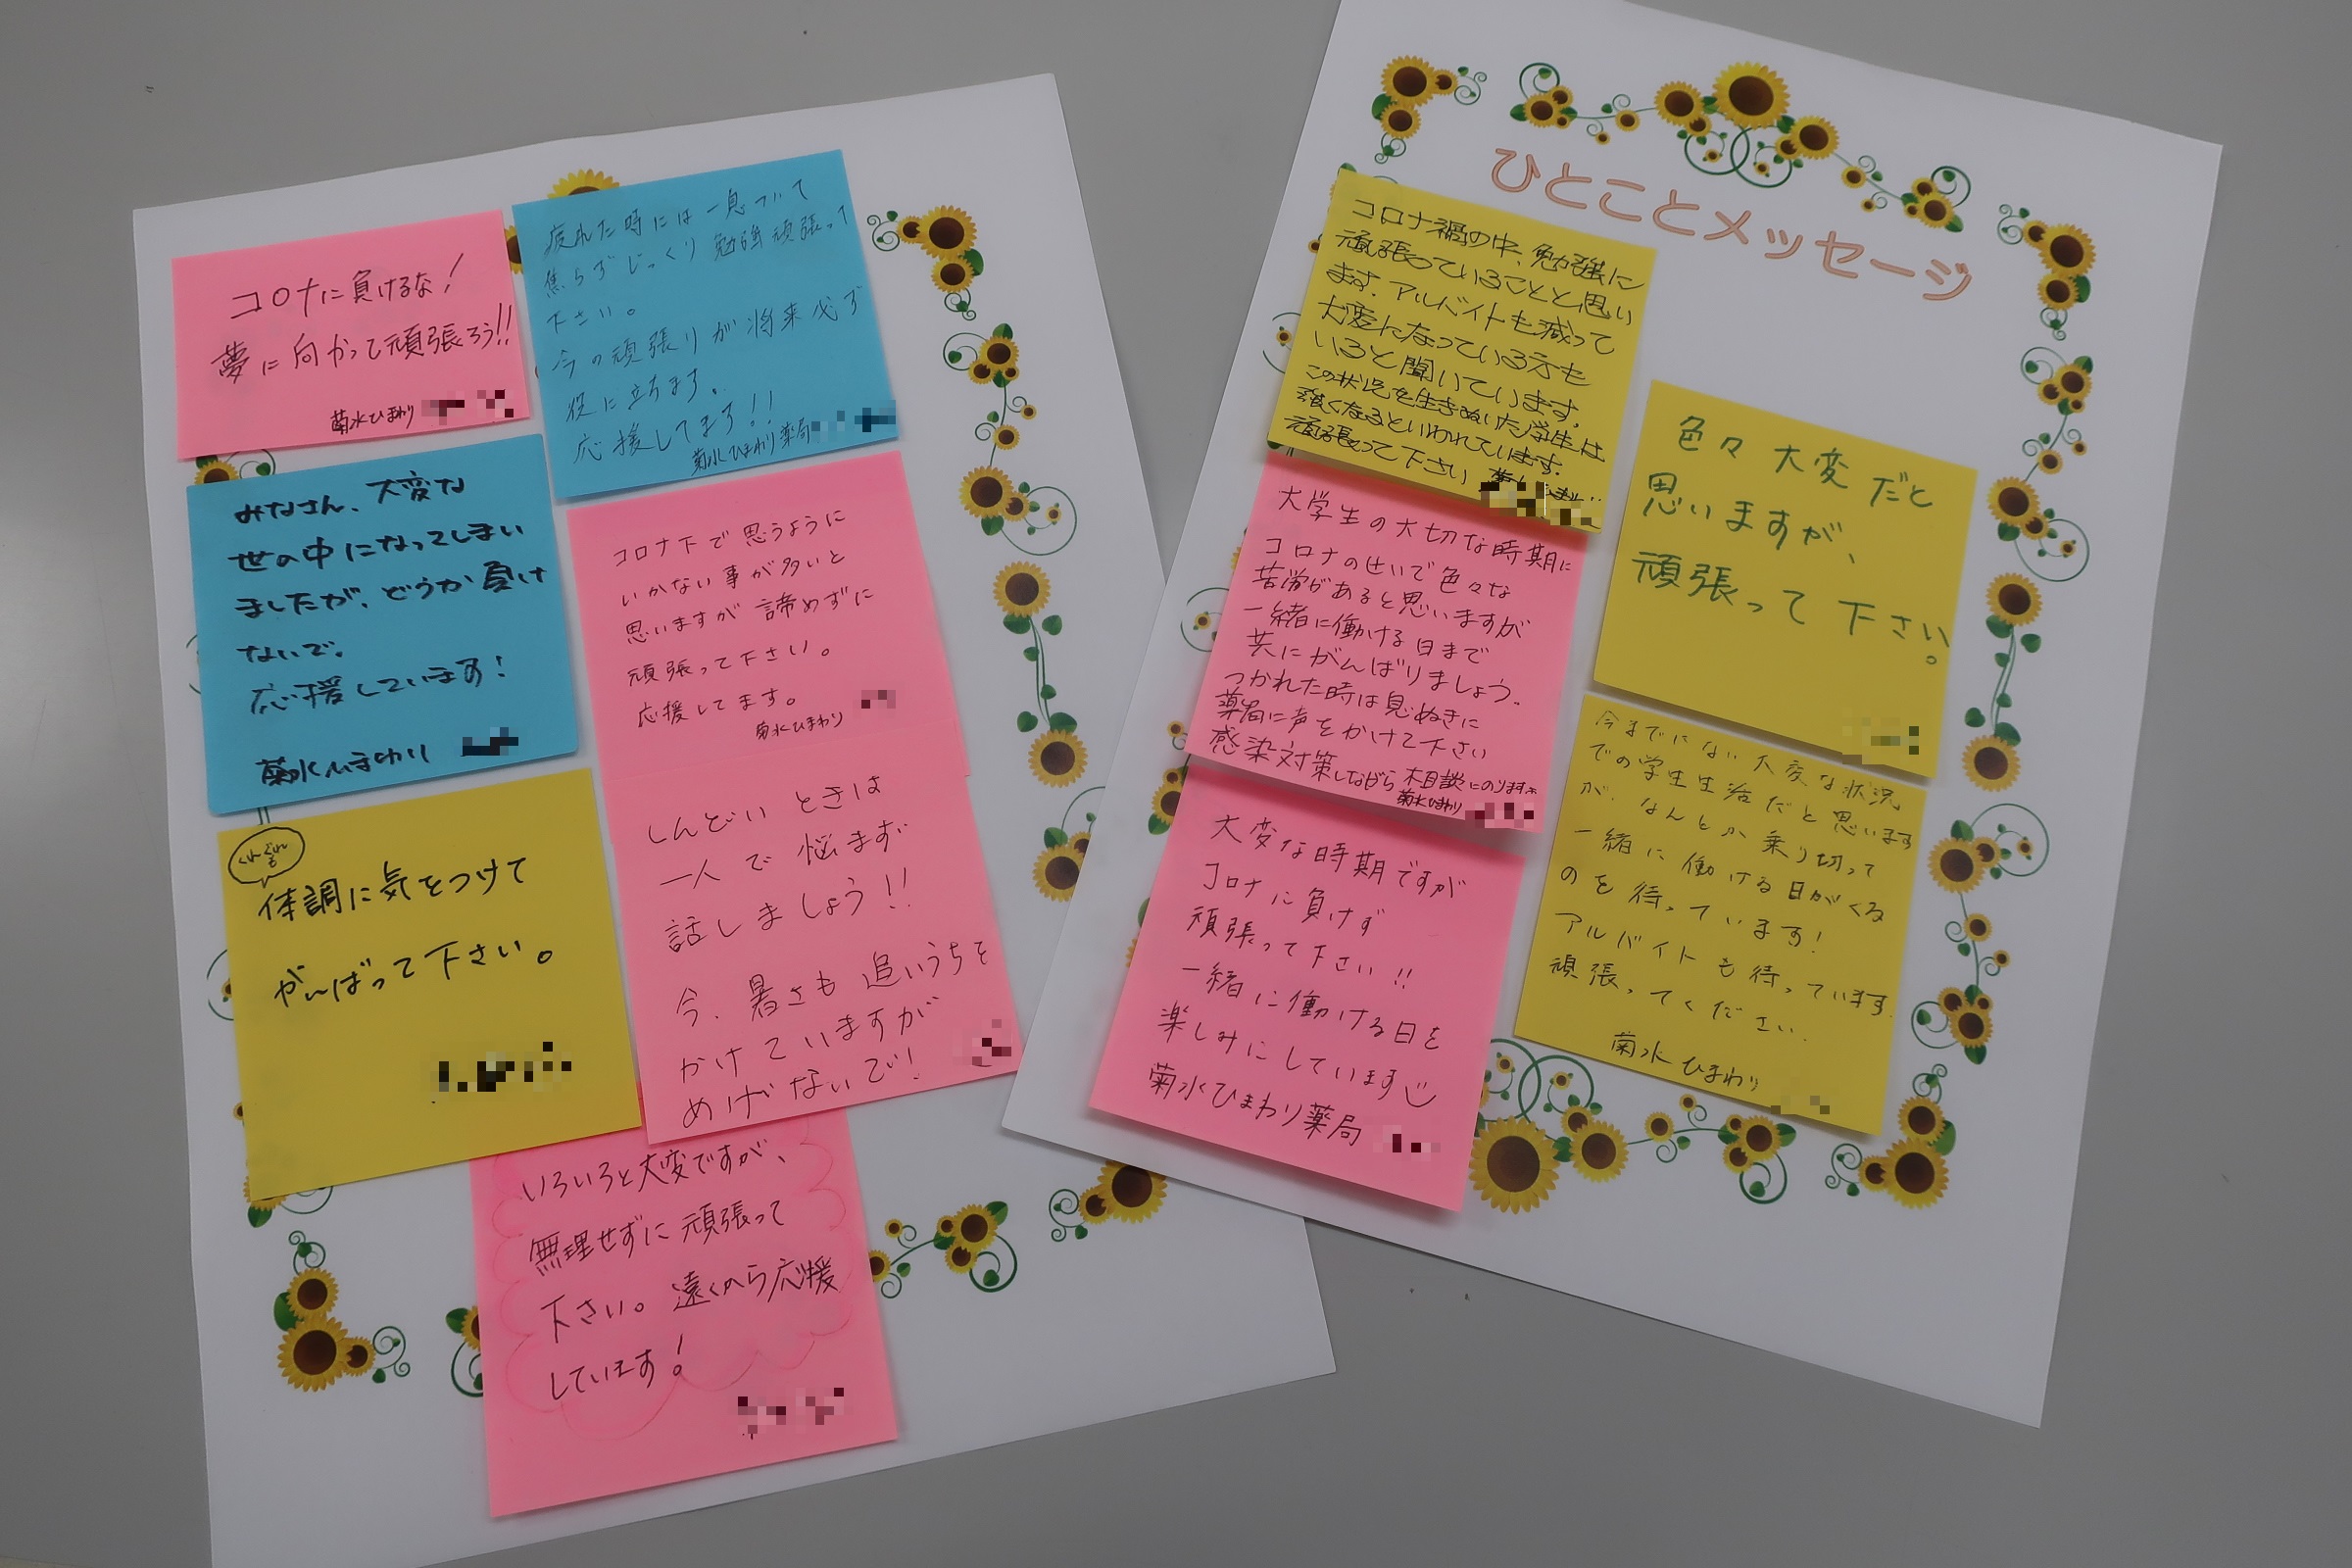 コロナに負けるな!
夢に向かって頑張ろう!!
菊水ひまわり
疲れた時には一息ついて
焦らずじっくり勉強頑張って
下さい。
今の頑張りが将来必ず
役に立ちます。
応援してます!!
菊水ひまわり薬局
みなさん、大変な
世の中になってしまい
ましたが、どうか負け
ないで。
応援しています!
菊水ひまわり
コロナ下で思うように
いかない事が多いと
思いますが諦めずに
頑張って下さい。
応援してます。
菊水ひまわり
くれぐれも
体調に気をつけて
がんばって下さい。
しんどいときは
一人で悩まず
話しましょう!!
今、暑さも追いうちを
かけていますが
めげないで!
いろいろと大変ですが、
無理せずに頑張って
下さい。遠くから応援
しています!
ひとことメッセージ
コロナ禍の中、勉強に
頑張っていることと思い
ます。アルバイトも減って
大変になっている方も
いると聞いています。
この状況を生きぬいた学生は
強くなるといわれています。
頑張って下さい
色々大変だと
思いますが、
頑張って下さい。
大学生の大切な時期に
コロナのせいで色々な
苦労があると思いますが
一緒に働ける日まで
共にがんばりましょう。
つかれた時は息ぬきに
薬局に声をかけて下さい
感染対策しながら相談にのります
菊水ひまわり
今までにない大変な状況
での学生生活だと思います
が、なんとか乗り切って
一緒に働ける日がくる
のを待っています!
アルバイトも待っています。
頑張ってください。
菊水ひまわり
大変な時期ですが
コロナに負けず
頑張って下さい!!
一緒に働ける日を
楽しみにしています
菊水ひまわり薬局